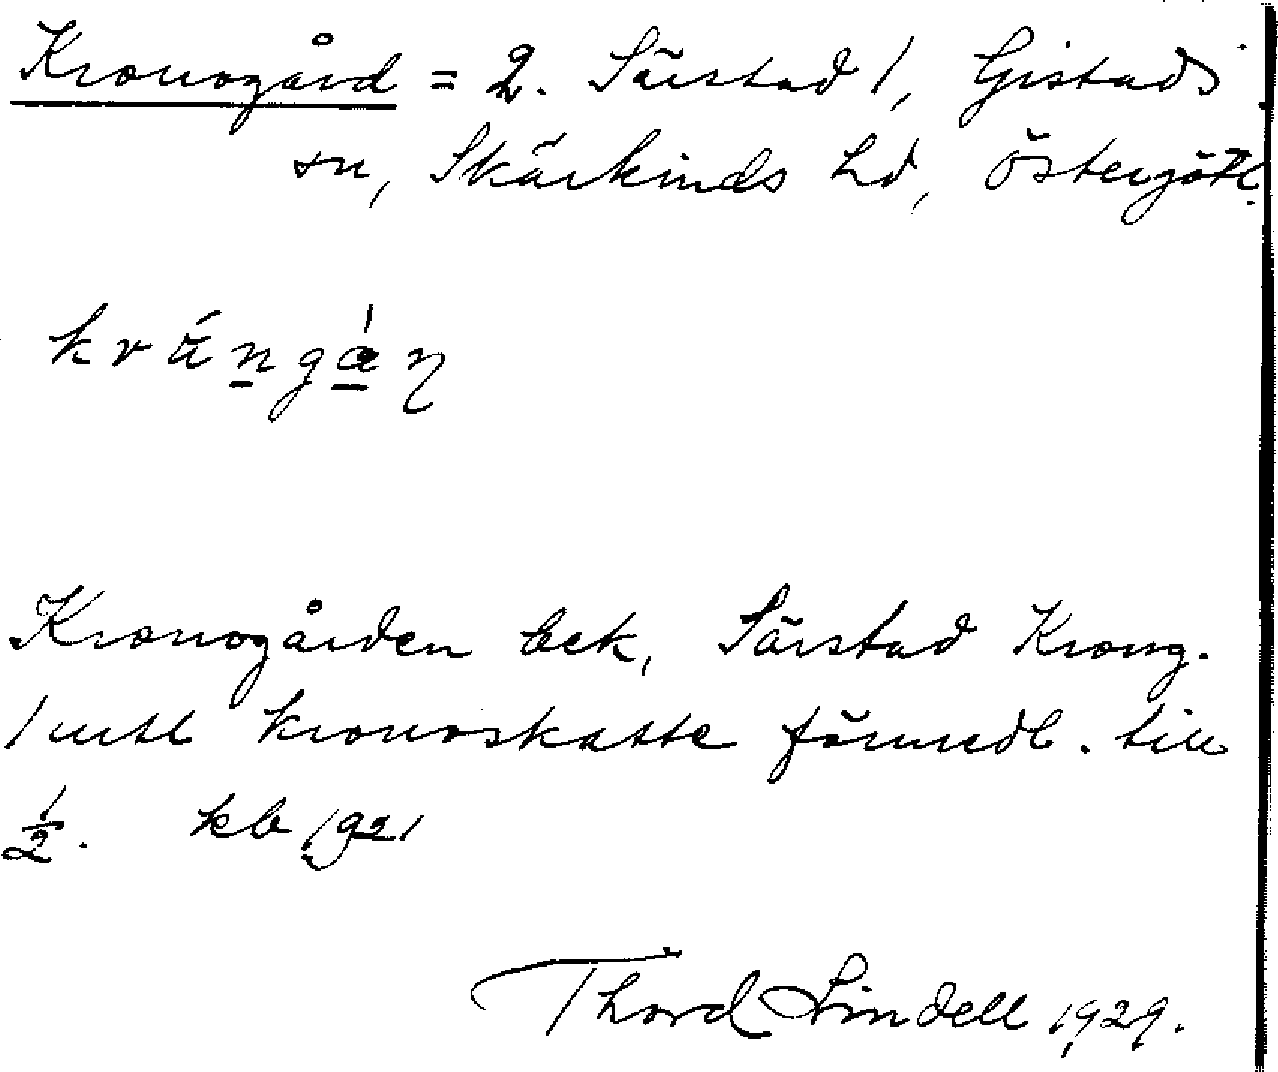 Kronogård = 2. Särstad 1, Gistads
sn, Skärkinds hd, Östergötl.
Kronogården bek, Särstad Krong.
1 mtl kronoskatte förmedl. till
1/2. kb 1921
Thord Lindell 1929.